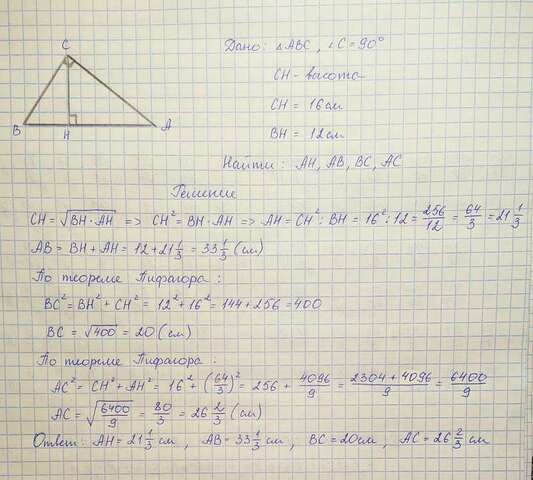 C
B H A
Дано: △ABC, ∠C=90°
CH - высота
CH = 16 см
BH = 12 см
Найти: AH, AB, BC, AC
Решение
CH = √(BH·AH) => CH² = BH·AH => AH = CH² : BH = 16² : 12 = 256/12 = 64/3 = 21 1/3
AB = BH + AH = 12 + 21 1/3 = 33 1/3 (см)
По теореме Пифагора:
BC² = BH² + CH² = 12² + 16² = 144 + 256 = 400
BC = √400 = 20 (см)
По теореме Пифагора:
AC² = CH² + AH² = 16² + (64/3)² = 256 + 4096/9 = (2304 + 4096)/9 = 6400/9
AC = √(6400/9) = 80/3 = 26 2/3 (см)
Ответ: AH = 21 1/3 см, AB = 33 1/3 см, BC = 20 см, AC = 26 2/3 см